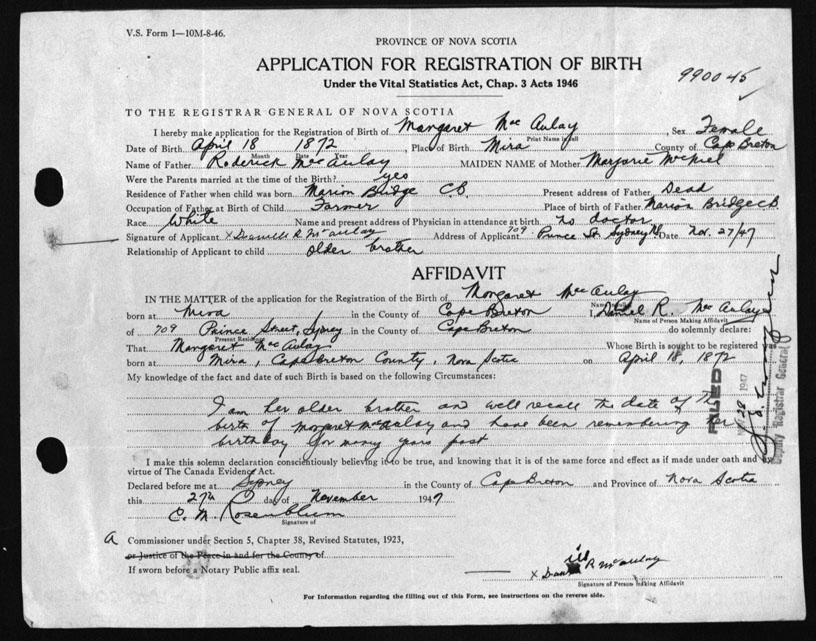 V.S. Form 1—10M-8-46.
PROVINCE OF NOVA SCOTIA
APPLICATION FOR REGISTRATION OF BIRTH
990045
Under the Vital Statistics Act, Chap. 3 Acts 1946
TO THE REGISTRAR GENERAL OF NOVA SCOTIA
I hereby make application for the Registration of Birth of Margaret Mac Aulay, Sex Female
Print Name in full
Date of Birth April 18 1872, Place of Birth Mira County of Cape Breton
Month Date Year
Name of Father Roderick MacAulay MAIDEN NAME of Mother Marjorie McNiel
Were the Parents married at the time of the Birth? yes
Residence of Father when child was born Marion Bridge C.B. Present address of Father Dead
Occupation of Father at Birth of Child Farmer Place of birth of Father Marion Bridge C.B.
Race White Name and present address of Physician in attendance at birth no doctor
Signature of Applicant x R. McAulay Address of Applicant 709 Prince St. Sydney NS Date Nov. 27/47
Relationship of Applicant to child older brother
AFFIDAVIT
IN THE MATTER of the application for the Registration of the Birth of Margaret MacAulay
born at Mira in the County of Cape Breton I, Daniel R. MacAulay
Name of Person Making Affidavit
of 709 Prince Street, Sydney in the County of Cape Breton do solemnly declare:
Present Residence
That Margaret MacAulay Whose Birth is sought to be registered was
born at Mira, Cape Breton County, Nova Scotia on April 18, 1872
My knowledge of the fact and date of such Birth is based on the following Circumstances:
I am her older brother and well recall the date of the
birth of Margaret MacAulay and have been remembering her
birthday for many years past
I make this solemn declaration conscientiously believing it to be true, and knowing that it is of the same force and effect as if made under oath and by
virtue of The Canada Evidence Act.
Declared before me at Sydney in the County of Cape Breton and Province of Nova Scotia
this 27th day of November 1947
C. M. Rosenblum
Signature of
A Commissioner under Section 5, Chapter 38, Revised Statutes, 1923,
or Justice of the Peace in and for the County of
If sworn before a Notary Public affix seal.
x R McAulay
Signature of Person Making Affidavit
For Information regarding the filling out of this Form, see instructions on the reverse side.
FILED
28 1947
Deputy Registrar General